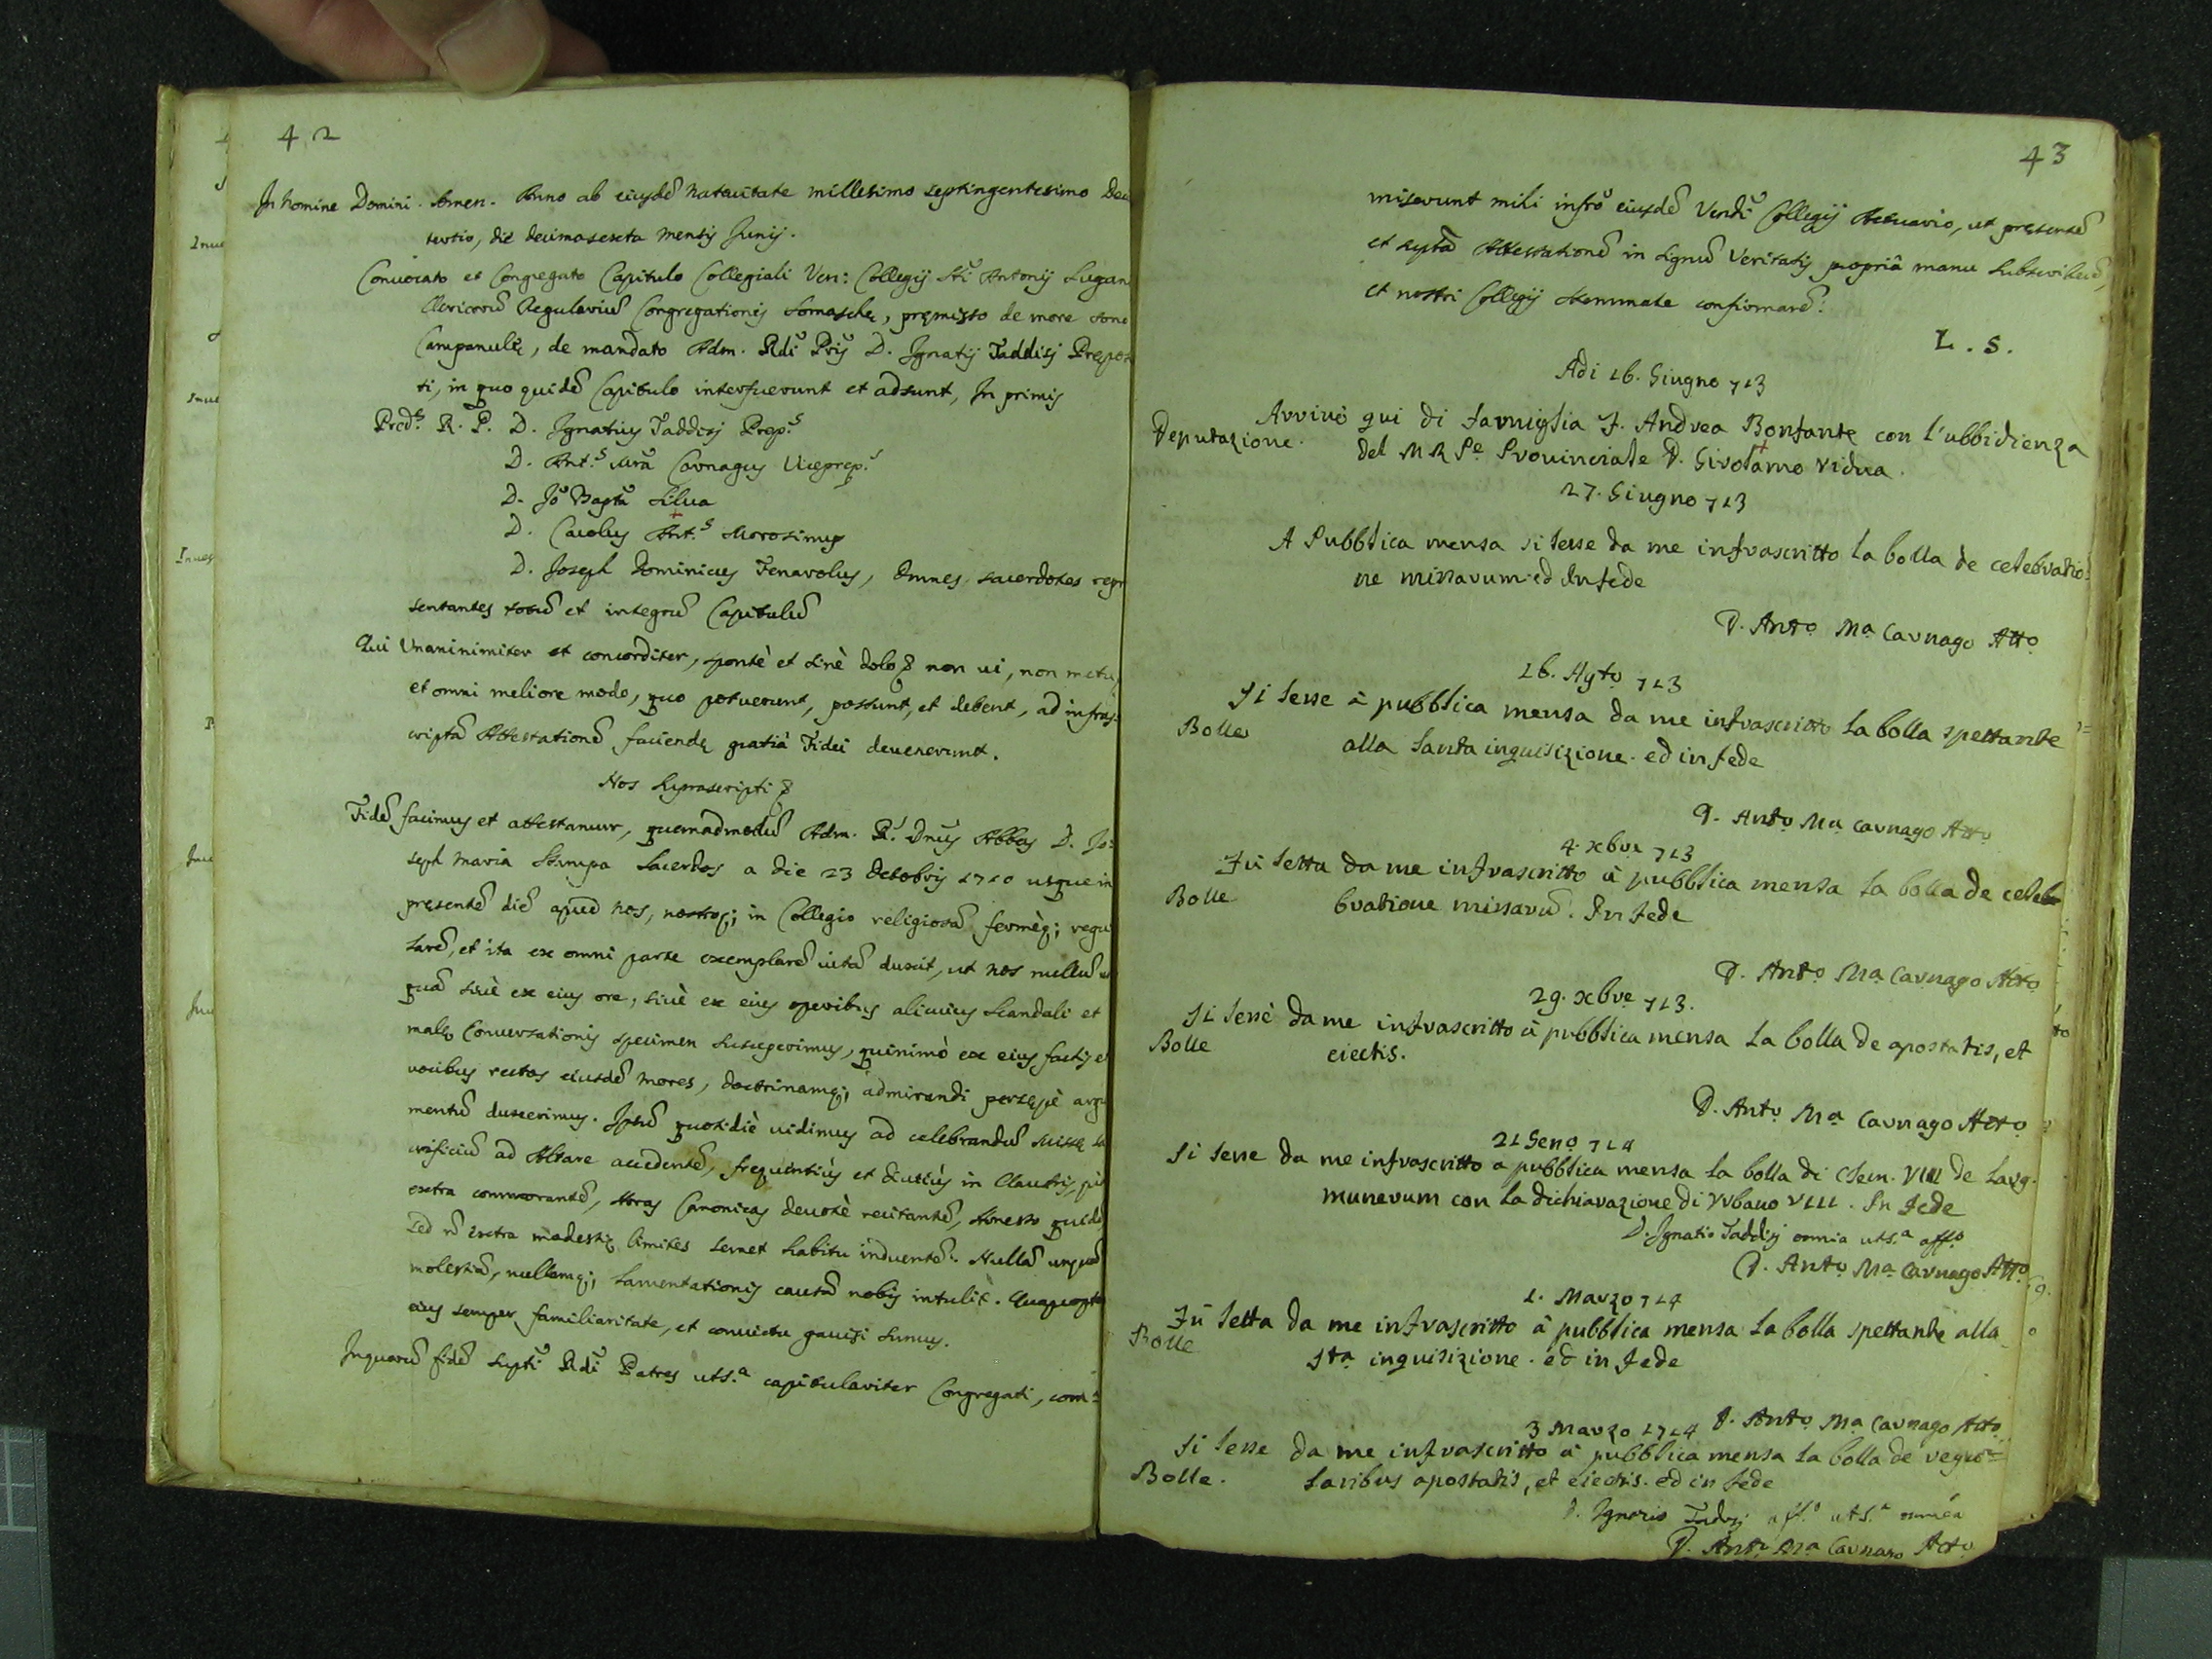 42
In Nomine Domini. Amen. Anno ab eiusdẽ Natiuitate millesimo septingentesimo Deci
tertio, die decimasexta Mensis Junij.
Conuocato et Congregato Capitulo Collegiali Ven: Collegij Sti Antonij Lugani
Clericorũ Regulariũ Congregationis Somaschę, pręmisso de more sono
Campanulę, de mandato Adm. Rdi Pris D. Ignatij Taddisj Prępos
ti, in quo quidẽ Capitulo interfuerunt et adsunt, In primis
Pred.s R. P. D. Ignatius Taddisj Prep.s
D. Ant.s Mra Carnagus Viceprep.s
D. Jõ Bapta Silua
D. Carolus Ant.s Morosinus
D. Joseph Dominicus Fenarolus, Omnes sacerdotes repr
sentantes totũ et integrũ Capitulũ
Qui Unanimiter et concorditer, spontè et sinè dolo & non ui, non metu,
et omni meliore modo, quo potuerunt, possunt, et debent, ad infras-
criptã Attestationẽ faciendę gratià Fidei deuenerunt.
Nos supraseripti &
Fidẽ facimus et attestamur, quemadmodũ Adm. R.s Dnus Abbas D. Jo-
seph Maria Stampa Sacerdos a die 23 Octobris 1710 usque in
pręsentẽ diẽ apud nos, nostroq; in Collegio religiosã fermèq; regu
larẽ, et ita ex omni parte exemplarẽ uitã duxit, ut nos nullũ u
quã siuè ex eius ore, siuè ex eius operibus alicuius scandali et
malę Conuersationis specimen susceperimus, quinimò ex eius factis et
uocibus rectos eiusdẽ mores, doctrinamq; admirandi persępè argu
mentũ duxerimus. Ipsũ quotidiè uidimus ad celebrandũ Missę sa
crificiũ ad Altare accedentẽ, frequentiùs et diutiùs in Claustris, q̃
extra commorantẽ, Horas Canonicas deuotè recitantẽ, Honesto quidẽ
sed nõ extra modestię limites semet habitu induentẽ. Nullã unquã
molestiã, nullamq; lamentationis causã nobis intulit. Quapropter
eius semper familiaritate, et conuictu gauisi sumus.
Inquorũ fidẽ supti Rdi Patres uts.a capitulariter Congregati, com-
43
miserunt mihi infro eiusdẽ Vendi Collegij Actuario, ut pręsentẽ
et suptã Attestationẽ in signũ Veritatis propriâ manu subscriberẽ,
et nostri Collegij stemmate confirmarẽ:
L. S.
Adi 16. Giugno 713
Arrivò qui di famiglia F. Andrea Bonfante con l'ubbidienza
Deputazione.
del M R Pe Provinciale D. Girolamo Vidua.
27. Giugno 713
A Pubblica mensa si lesse da me infrascritto la bolla de celebratio=
ne missarum ed In fede
D. Anto Ma Carnago Atto
16. Agto 713
Si lesse à pubblica mensa da me infrascritto la bolla spettante
Bolle
alla santa inquisizione. ed in fede
D. Anto Ma Carnago Atto
4. xbre 713
Fù letta da me infrascritto à pubblica mensa la bolla de cele
Bolle
bratione missarũ. In fede
D. Anto Ma Carnago Atto
29. xbre 713.
Si lesse da me infrascritto à pubblica mensa la bolla de apostatis, et
Bolle
eiectis.
D. Anto Ma Carnago Atto
21 Geno 714
Si lesse da me infrascritto a pubblica mensa la bolla di Clem. VIII de Larg.
munerum con la dichiarazione di Vrbano VIII. In fede
D. Ignatio Taddisj omnia uts.a aff.o
D. Anto Ma Carnago Atto
1. Marzo 714
Fù letta da me infrascritto à pubblica mensa la bolla spettante alla
Bolle
sta inquisizione. ed in fede
D. Anto Ma Carnago Atto
3 Marzo 1714
Si lesse da me infrascritto à pubblica mensa la bolla de regu=
Bolle.
laribus apostatis, et eiectis. ed in fede
D. Ignatio Tadisj aff.o uts.a omnia
D. Anto Ma Carnago Atto